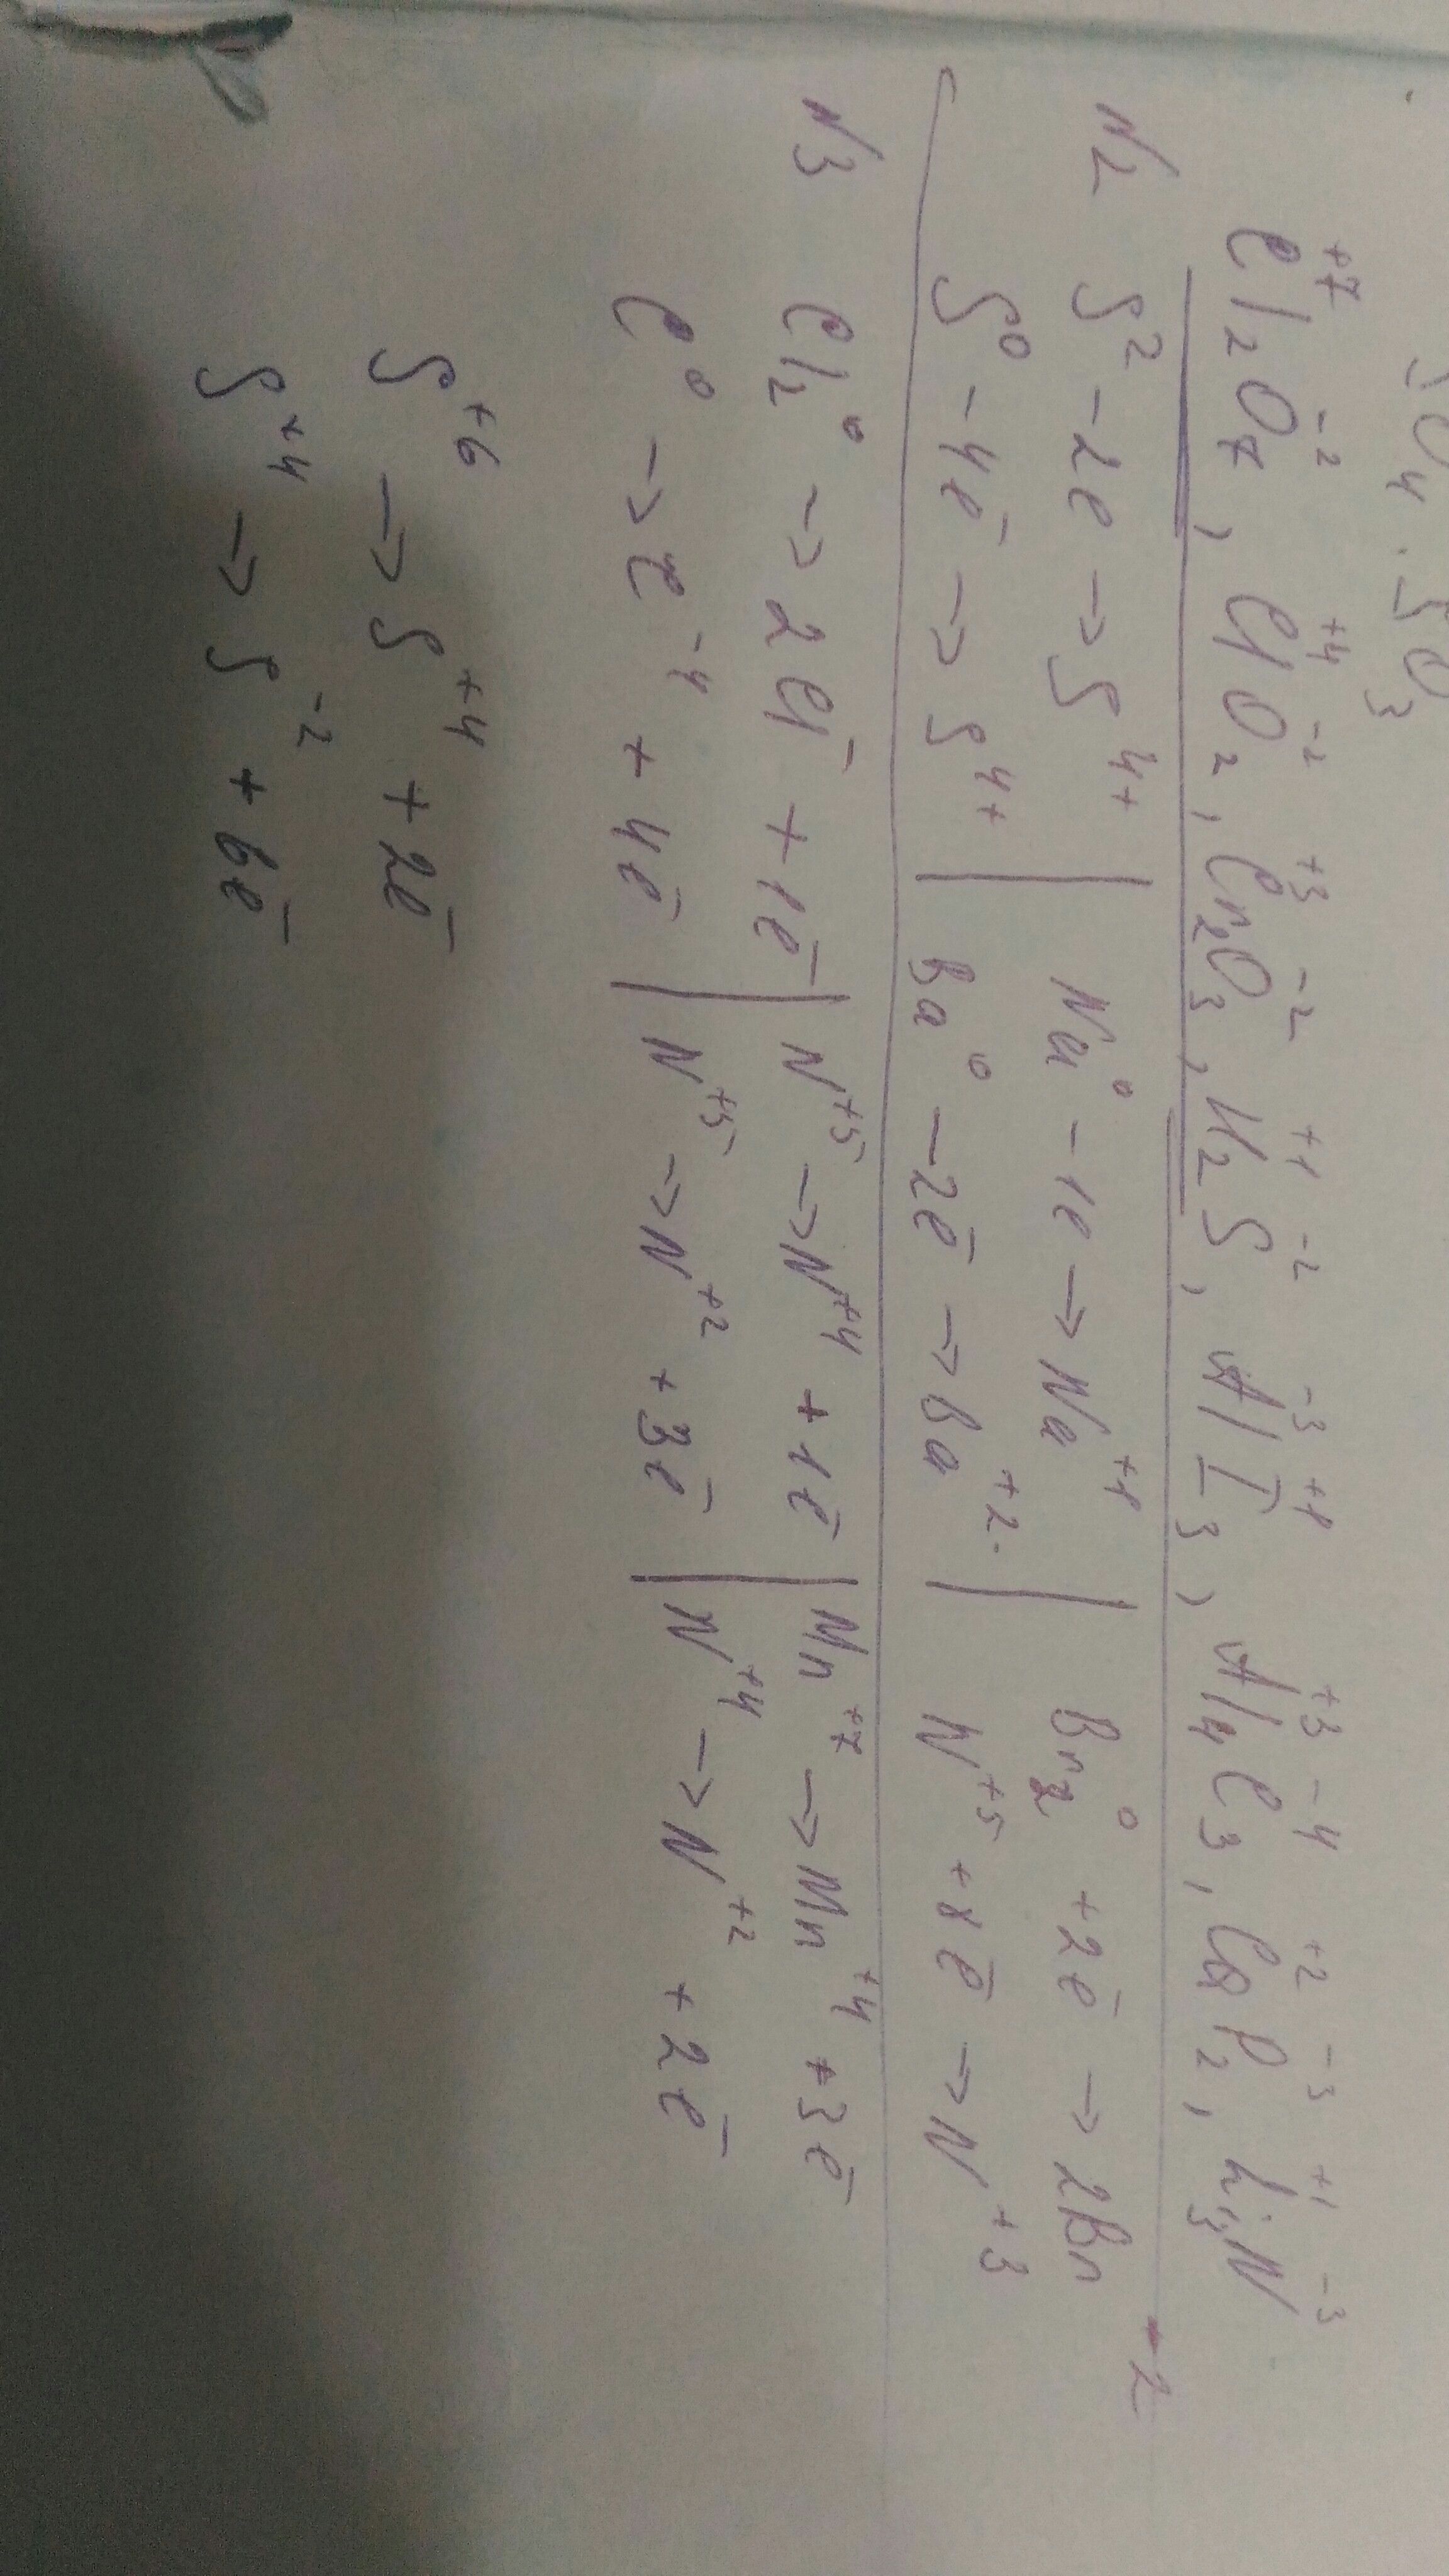 SO₄ · SO₃
Cl₂⁺⁷O₇⁻², Cl⁺⁴O₂⁻², Cr₂⁺³O₃⁻², H₂⁺¹S⁻², Al⁻³I₃⁺¹, Al₄⁺³C₃⁻⁴, Ca⁺²P₂⁻³, Li₃⁺¹N⁻³
N2 S² -2e → S⁴⁺ | Na⁰ - 1e → Na⁺¹ | Br₂⁰ +2e⁻ → 2Br⁻²
S⁰ - 4e⁻ → S⁴⁺ | Ba⁰ -2e⁻ → Ba⁺². | N⁺⁵ +8e⁻ → N⁺³
N3 Cl₂⁰ → 2Cl⁻ + 1e⁻ | N⁺⁵ → N⁺⁴ + 1e⁻ | Mn⁺⁷ → Mn⁺⁴ +3e⁻
C⁰ → C⁻⁴ + 4e⁻ | N⁺⁵ → N⁺² + 3e⁻ | N⁺⁴ → N⁺² + 2e⁻
S⁺⁶ → S⁺⁴ + 2e⁻
S⁺⁴ → S⁻² + 6e⁻